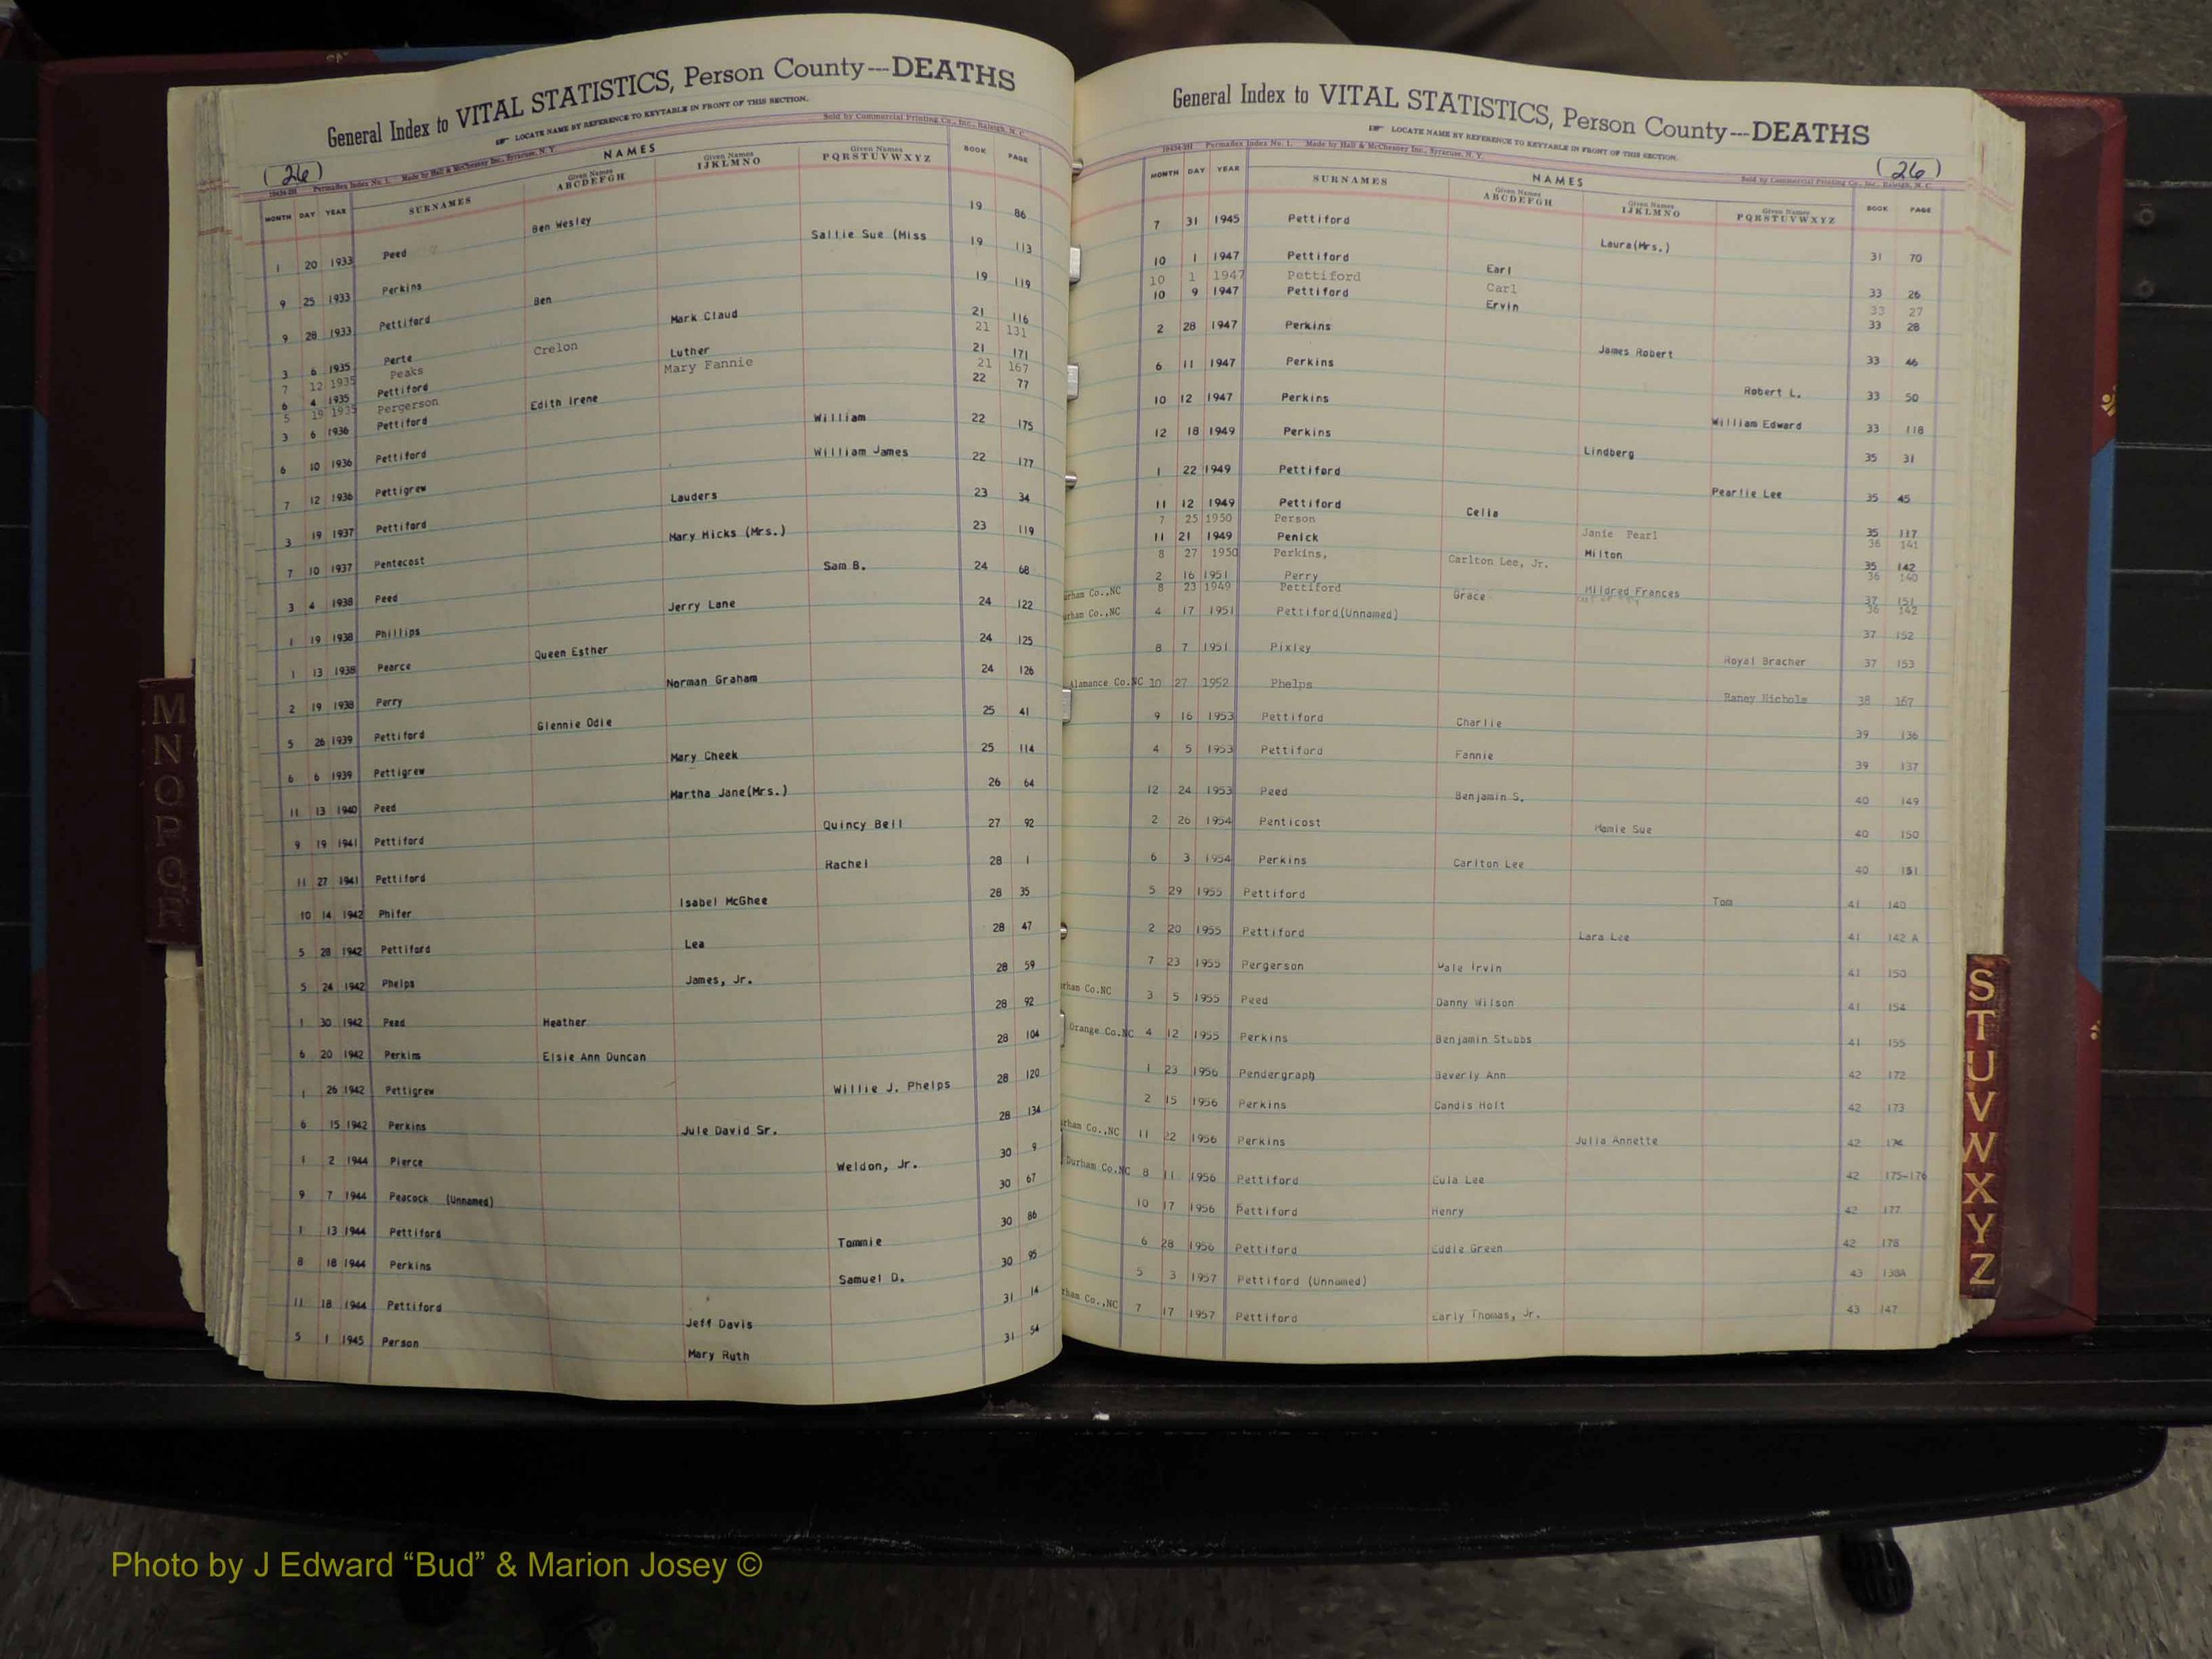 General Index to VITAL STATISTICS, Person County---DEATHS
LOCATE NAME BY REFERENCE TO KEYTABLE IN FRONT OF THIS SECTION.
Sold by Commercial Printing Co., Inc., Raleigh, N. C.
(26)
Permadex Index No. 1. Made by Hall & McChesney Inc., Syracuse, N. Y.
NAMES
MONTH DAY YEAR SURNAMES Given Names ABCDEFGH Given Names IJKLMNO Given Names PQRSTUVWXYZ BOOK PAGE
1 20 1933 Peed Ben Wesley 19 86
9 25 1933 Perkins Sallie Sue (Miss 19 113
9 28 1933 Pettiford Ben 19 119
3 6 1935 Perte Mark Claud 21 116
7 12 1935 Peaks Crelon 21 131
6 4 1935 Pettiford Luther 21 171
5 19 1935 Pergerson Mary Fannie 21 167
3 6 1936 Pettiford Edith Irene 22 77
6 10 1936 Pettiford William 22 175
7 12 1936 Pettigrew William James 22 177
3 19 1937 Pettiford Lauders 23 34
7 10 1937 Pentecost Mary Hicks (Mrs.) 23 119
3 4 1938 Peed Sam B. 24 68
1 19 1938 Phillips Jerry Lane 24 122
1 13 1938 Pearce Queen Esther 24 125
2 19 1938 Perry Norman Graham 24 126
5 26 1939 Pettiford Glennie Odie 25 41
6 6 1939 Pettigrew Mary Cheek 25 114
11 13 1940 Peed Martha Jane(Mrs.) 26 64
9 19 1941 Pettiford Quincy Bell 27 92
11 27 1941 Pettiford Rachel 28 1
10 14 1942 Phifer Isabel McGhee 28 35
5 28 1942 Pettiford Lea 28 47
5 24 1942 Phelps James, Jr. 28 59
1 30 1942 Peed Heather 28 92
6 20 1942 Perkins Elsie Ann Duncan 28 104
1 26 1942 Pettigrew Willie J. Phelps 28 120
6 15 1942 Perkins Jule David Sr. 28 134
1 2 1944 Pierce Weldon, Jr. 30 9
9 7 1944 Peacock (Unnamed) 30 67
1 13 1944 Pettiford Tommie 30 86
8 18 1944 Perkins Samuel D. 30 95
11 18 1944 Pettiford Jeff Davis 31 14
5 1 1945 Person Mary Ruth 31 54
General Index to VITAL STATISTICS, Person County---DEATHS
LOCATE NAME BY REFERENCE TO KEYTABLE IN FRONT OF THIS SECTION.
Permadex Index No. 1. Made by Hall & McChesney Inc., Syracuse, N. Y.
Sold by Commercial Printing Co., Inc., Raleigh, N. C.
(26)
NAMES
MONTH DAY YEAR SURNAMES Given Names ABCDEFGH Given Names IJKLMNO Given Names PQRSTUVWXYZ BOOK PAGE
7 31 1945 Pettiford Laura(Mrs.) 31 70
10 1 1947 Pettiford Earl 33 26
10 1 1947 Pettiford Carl 33 27
10 9 1947 Pettiford Ervin 33 28
2 28 1947 Perkins James Robert 33 46
6 11 1947 Perkins Robert L. 33 50
10 12 1947 Perkins William Edward 33 118
12 18 1949 Perkins Lindberg 35 31
1 22 1949 Pettiford Pearlie Lee 35 45
11 12 1949 Pettiford Celia 35 117
7 25 1950 Person Janie Pearl 36 141
11 21 1949 Penick Milton 35 142
8 27 1950 Perkins, Carlton Lee, Jr. 36 140
2 16 1951 Perry Mildred Frances 37 151
urham Co.,NC 8 23 1949 Pettiford Grace 36 142
urham Co.,NC 4 17 1951 Pettiford(Unnamed) 37 152
8 7 1951 Pixley Royal Bracher 37 153
Alamance Co.NC 10 27 1952 Phelps Raney Nichols 38 167
9 16 1953 Pettiford Charlie 39 136
4 5 1953 Pettiford Fannie 39 137
12 24 1953 Peed Benjamin S. 40 149
2 26 1954 Penticost Mamie Sue 40 150
6 3 1954 Perkins Carlton Lee 40 151
5 29 1955 Pettiford Tom 41 140
2 20 1955 Pettiford Lara Lee 41 142 A
7 23 1955 Pergerson Dale Irvin 41 150
rham Co.NC 3 5 1955 Peed Danny Wilson 41 154
Orange Co.NC 4 12 1955 Perkins Benjamin Stubbs 41 155
1 23 1956 Pendergraph Beverly Ann 42 172
2 15 1956 Perkins Candis Holt 42 173
rham Co.,NC 11 22 1956 Perkins Julia Annette 42 174
Durham Co.NC 8 11 1956 Pettiford Eula Lee 42 175-176
10 17 1956 Pettiford Henry 42 177
6 28 1956 Pettiford Eddie Green 42 178
5 3 1957 Pettiford (Unnamed) 43 138A
rham Co.,NC 7 17 1957 Pettiford Early Thomas, Jr. 43 147
M
N
O
P
Q
R
S
T
U
V
W
X
Y
Z
Photo by J Edward “Bud” & Marion Josey ©